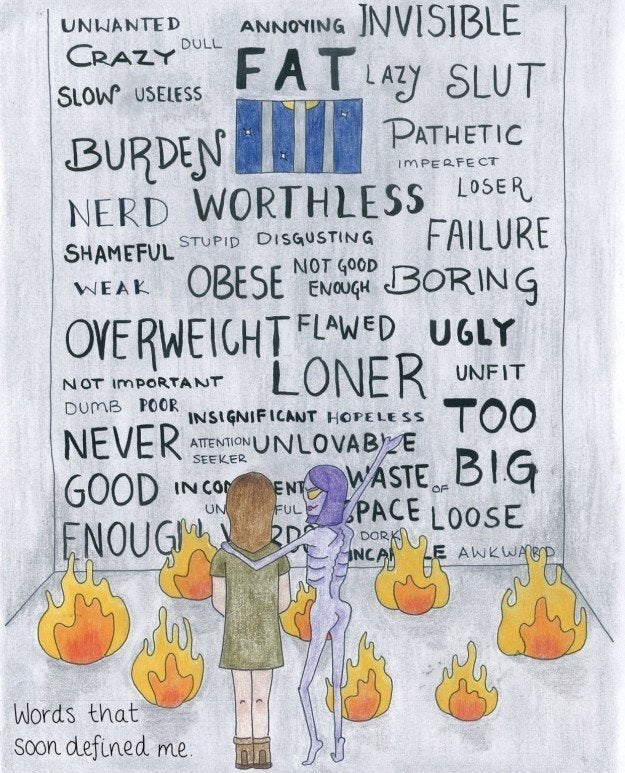 UNWANTED ANNOYING INVISIBLE
CRAZY DULL FAT LAZY SLUT
SLOW USELESS
BURDEN PATHETIC
IMPERFECT
NERD WORTHLESS LOSER
SHAMEFUL STUPID DISGUSTING FAILURE
WEAK OBESE NOT GOOD ENOUGH BORING
OVERWEIGHT FLAWED UGLY
NOT IMPORTANT LONER UNFIT
DUMB POOR INSIGNIFICANT HOPELESS TOO
NEVER ATTENTION SEEKER UNLOVABLE BIG
GOOD WASTE OF
SPACE LOOSE
ENOUGH DORK
AWKWARD
Words that
soon defined me.